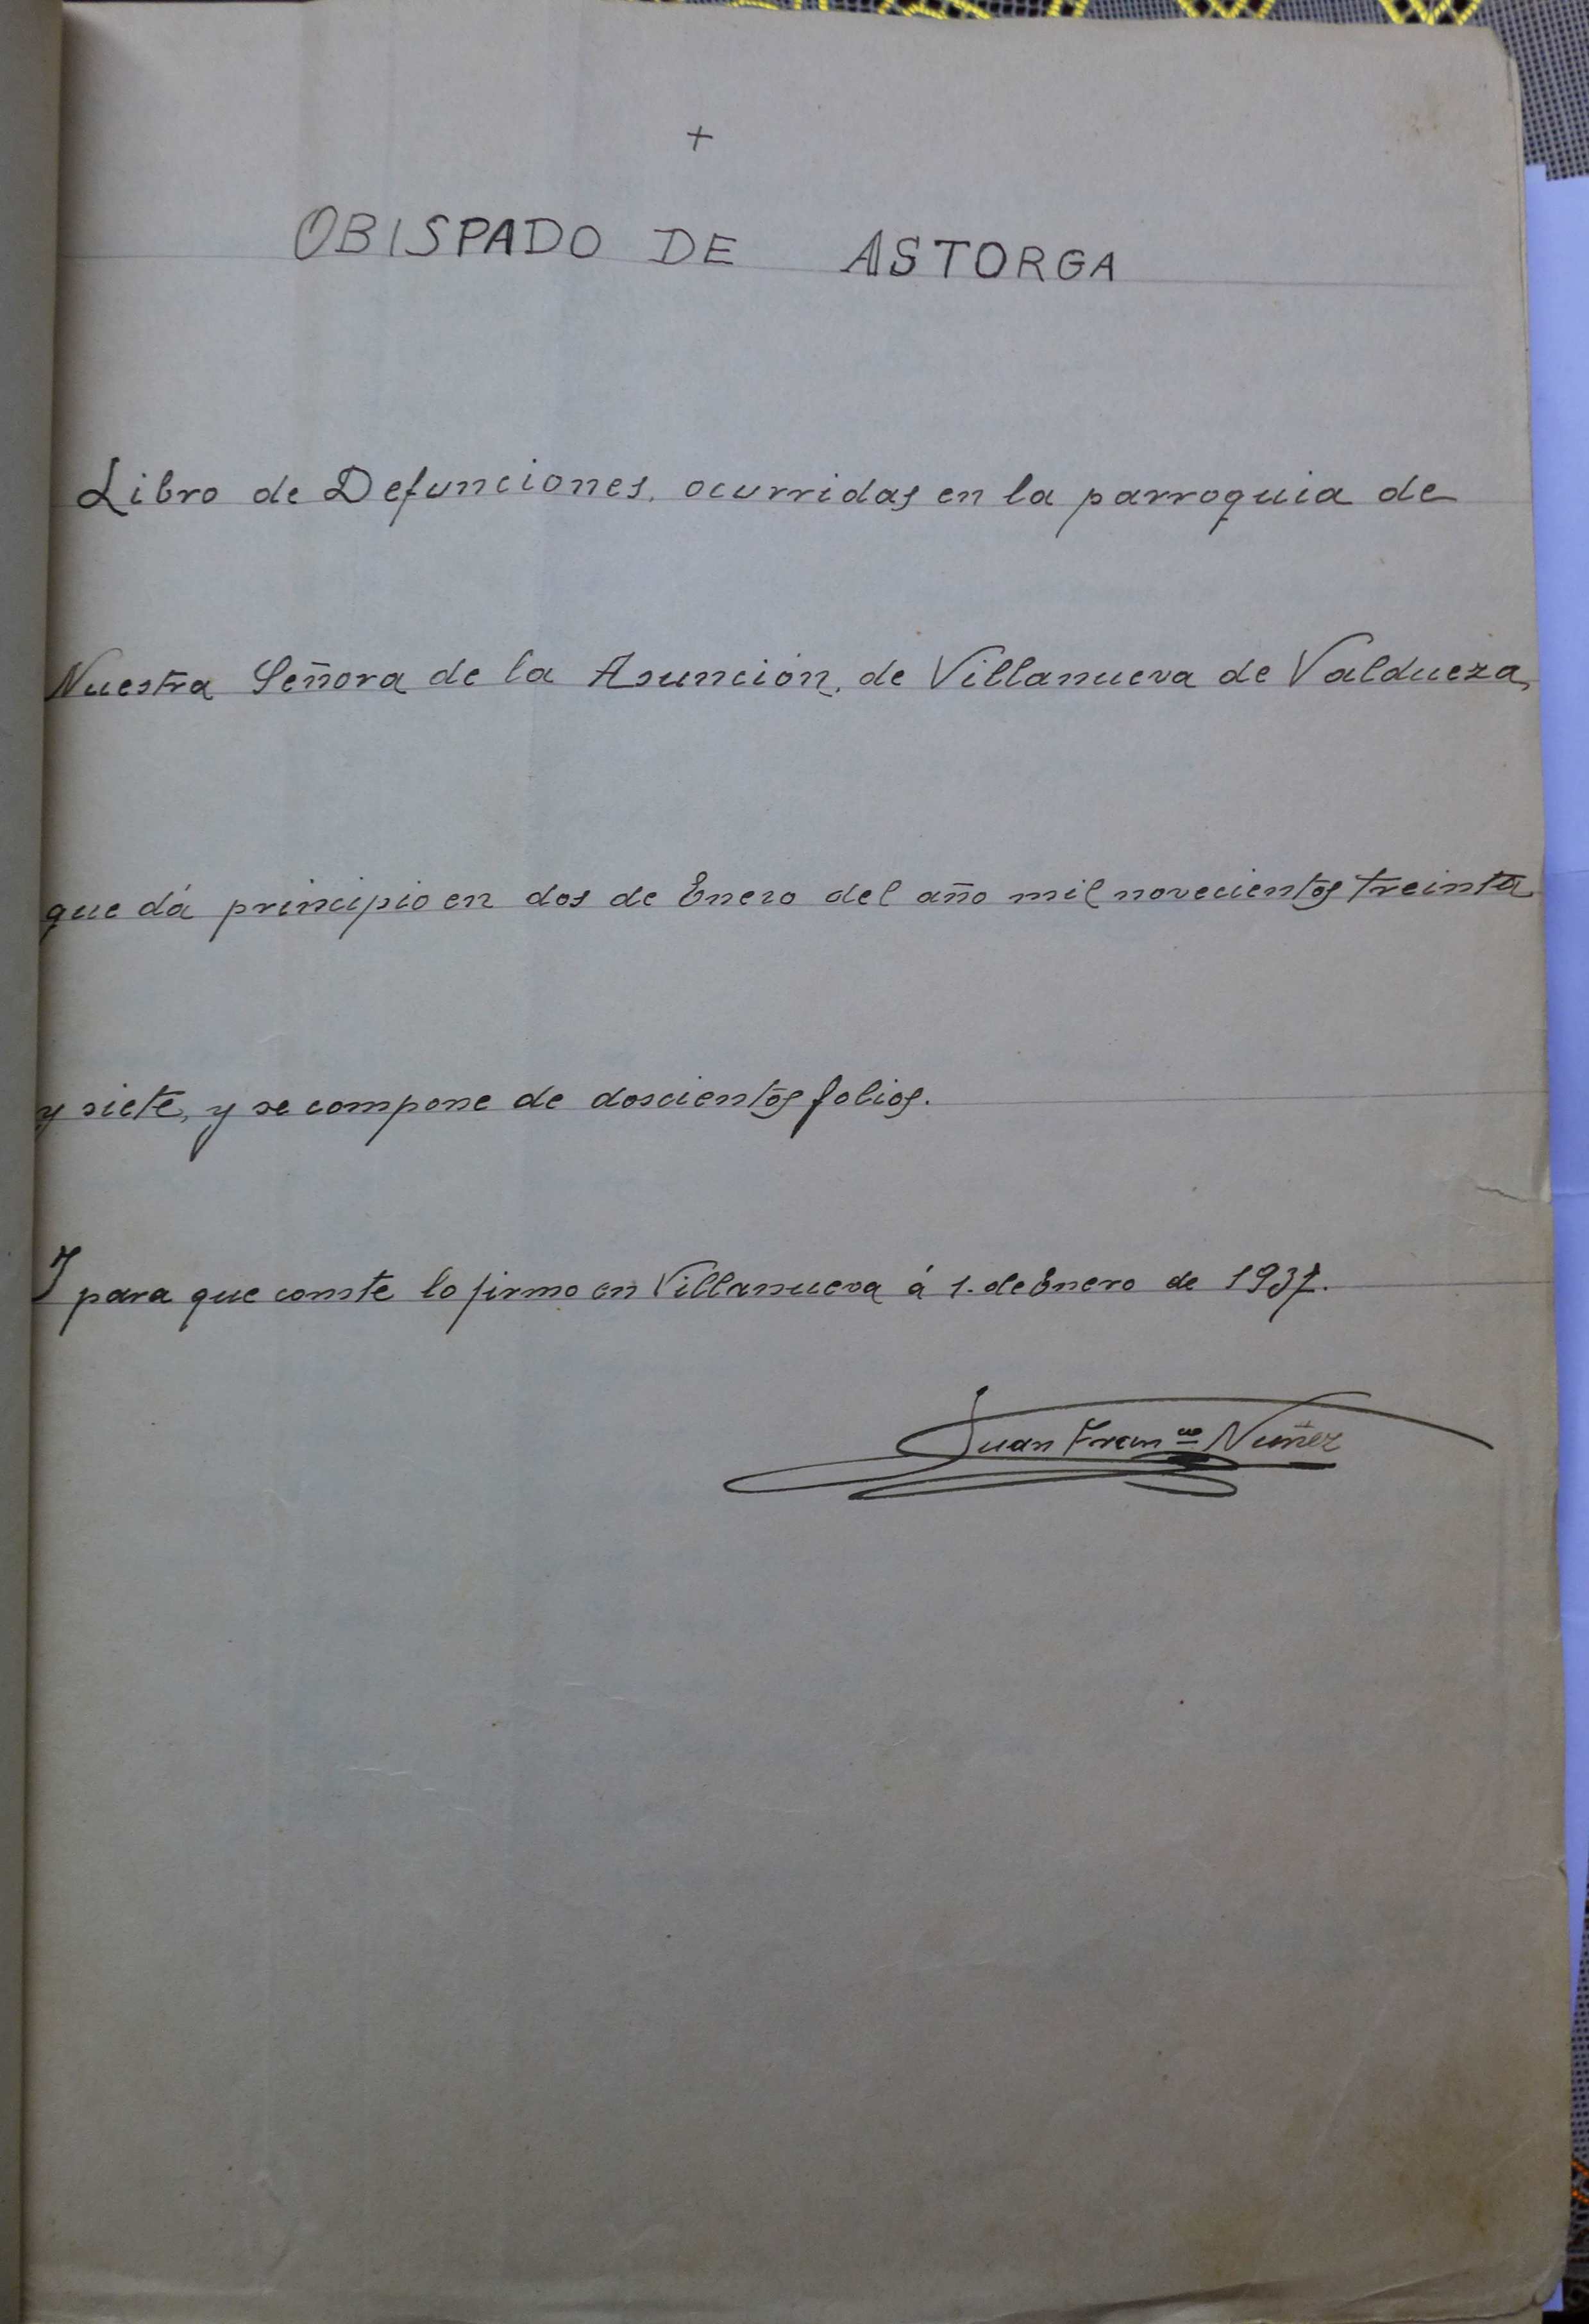 +
OBISPADO DE ASTORGA
Libro de Defunciones, ocurridas en la parroquia de
Nuestra Señora de la Asunción, de Villanueva de Valdueza,
que dá principio en dos de Enero del año mil novecientos treinta
y siete, y se compone de doscientos folios.
Y para que conste lo firmo en Villanueva á 1. de Enero de 1937.
Juan Franco Nuñez